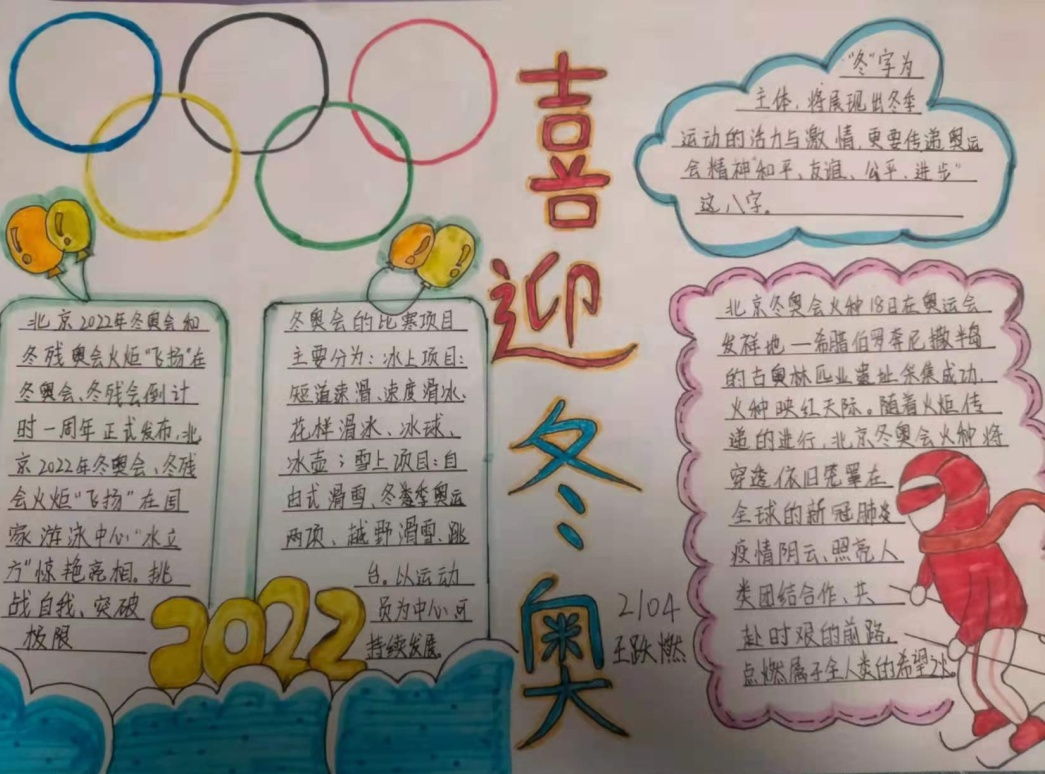 喜迎冬奥
"冬"字为
主体,将展现出冬季
运动的活力与激情,更要传递奥运
会精神"和平、友谊、公平、进步"
这八字。
北京2022年冬奥会和
冬残奥会火炬"飞扬"在
冬奥会、冬残会倒计
时一周年正式发布,北
京2022年冬奥会、冬残
会火炬"飞扬"在国
家游泳中心"水立
方"惊艳亮相。挑
战自我、突破
极限
冬奥会的比赛项目
主要分为:冰上项目:
短道速滑、速度滑冰、
花样滑冰、冰球、
冰壶;雪上项目:自
由式滑雪、冬季奥运
两项、越野滑雪、跳
台。以运动
员为中心、可
持续发展。
2022
北京冬奥会火种18日在奥运会
发祥地—希腊伯罗奔尼撒半岛
的古奥林匹亚遗址采集成功,
火种映红天际。随着火炬传
递的进行,北京冬奥会火种将
穿透依旧笼罩在
全球的新冠肺炎
疫情阴云、照亮人
类团结合作、共
赴时艰的前路,
点燃属于全人类的希望之
2104
王跃燃